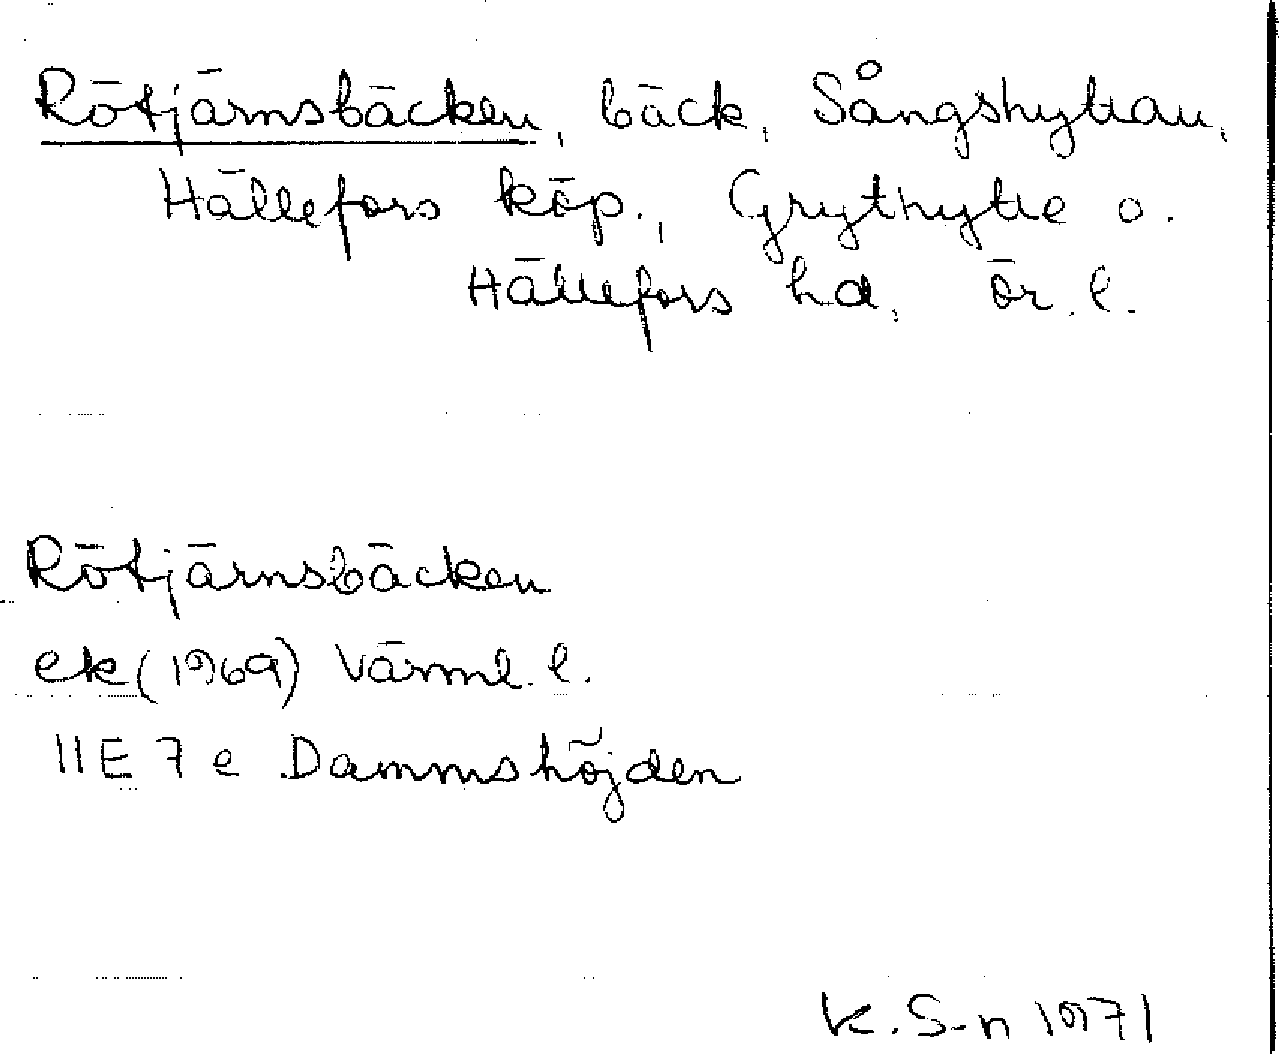 Rötjärnsbäcken, bäck, Sångshyttan,
Hällefors köp., Grythytte o.
Hällefors hd, Ör. l.
Rötjärnsbäcken
ek (1969) Värml. l.
11E 7e Dammshöjden
K. S-n 1971